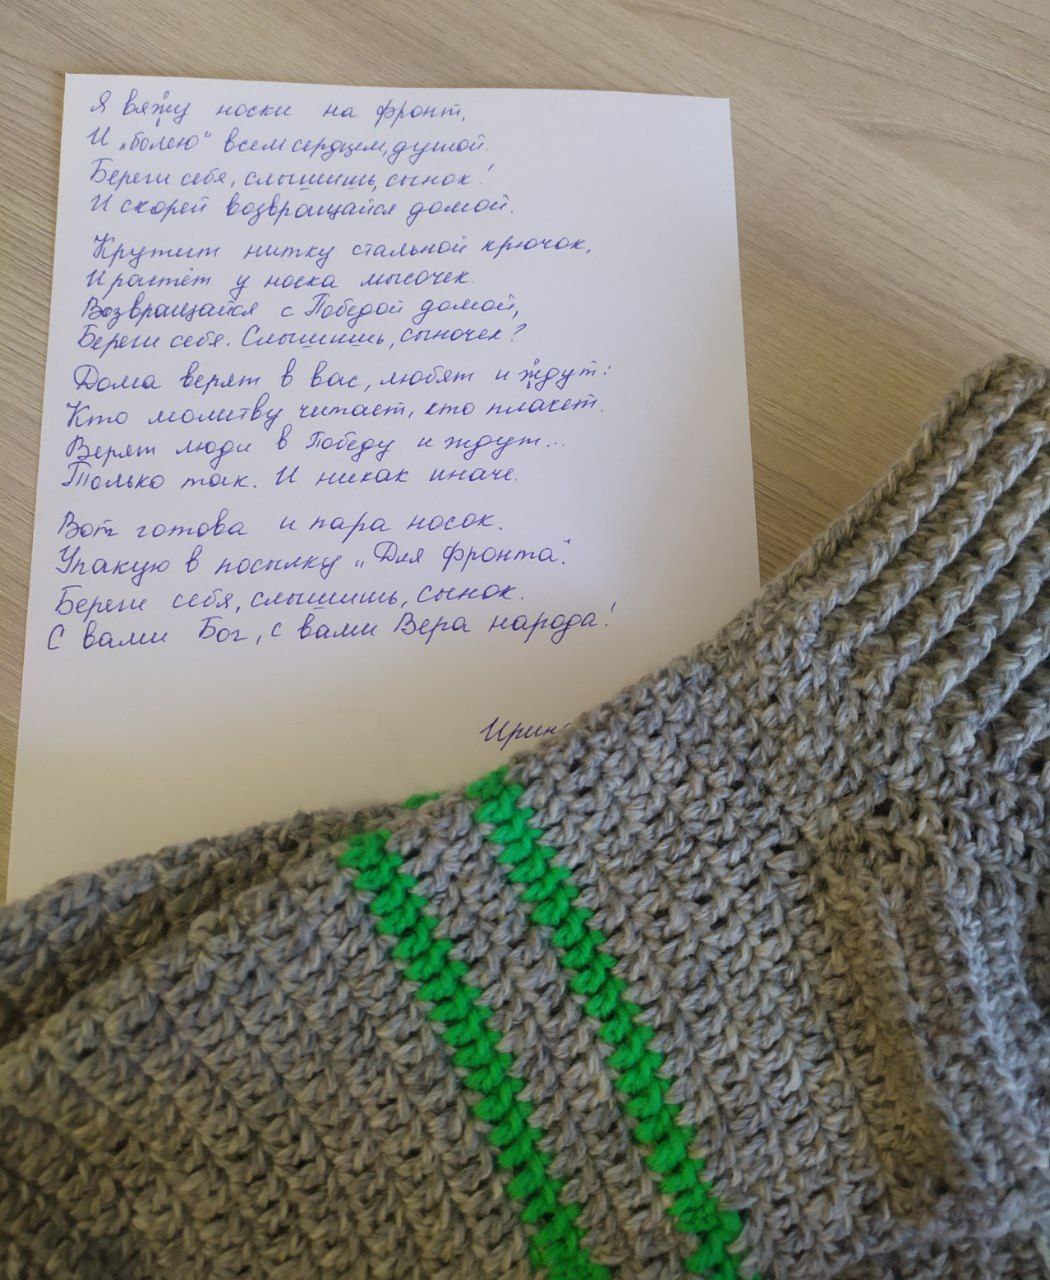 Я вяжу носки на фронт,
И „болею“ всем сердцем, душой.
Береги себя, слышишь, сынок!
И скорей возвращайся домой.
Крутит нитку стальной крючок,
И растёт у носка мысочек.
Возвращайся с Победой домой,
Береги себя. Слышишь, сыночек?
Дома верят в вас, любят и ждут:
Кто молитву читает, кто плачет.
Верят люди в Победу и ждут...
Только так. И никак иначе.
Вот готова и пара носок.
Упакую в посылку „Для фронта“.
Береги себя, слышишь, сынок.
С вами Бог, с вами Вера народа!